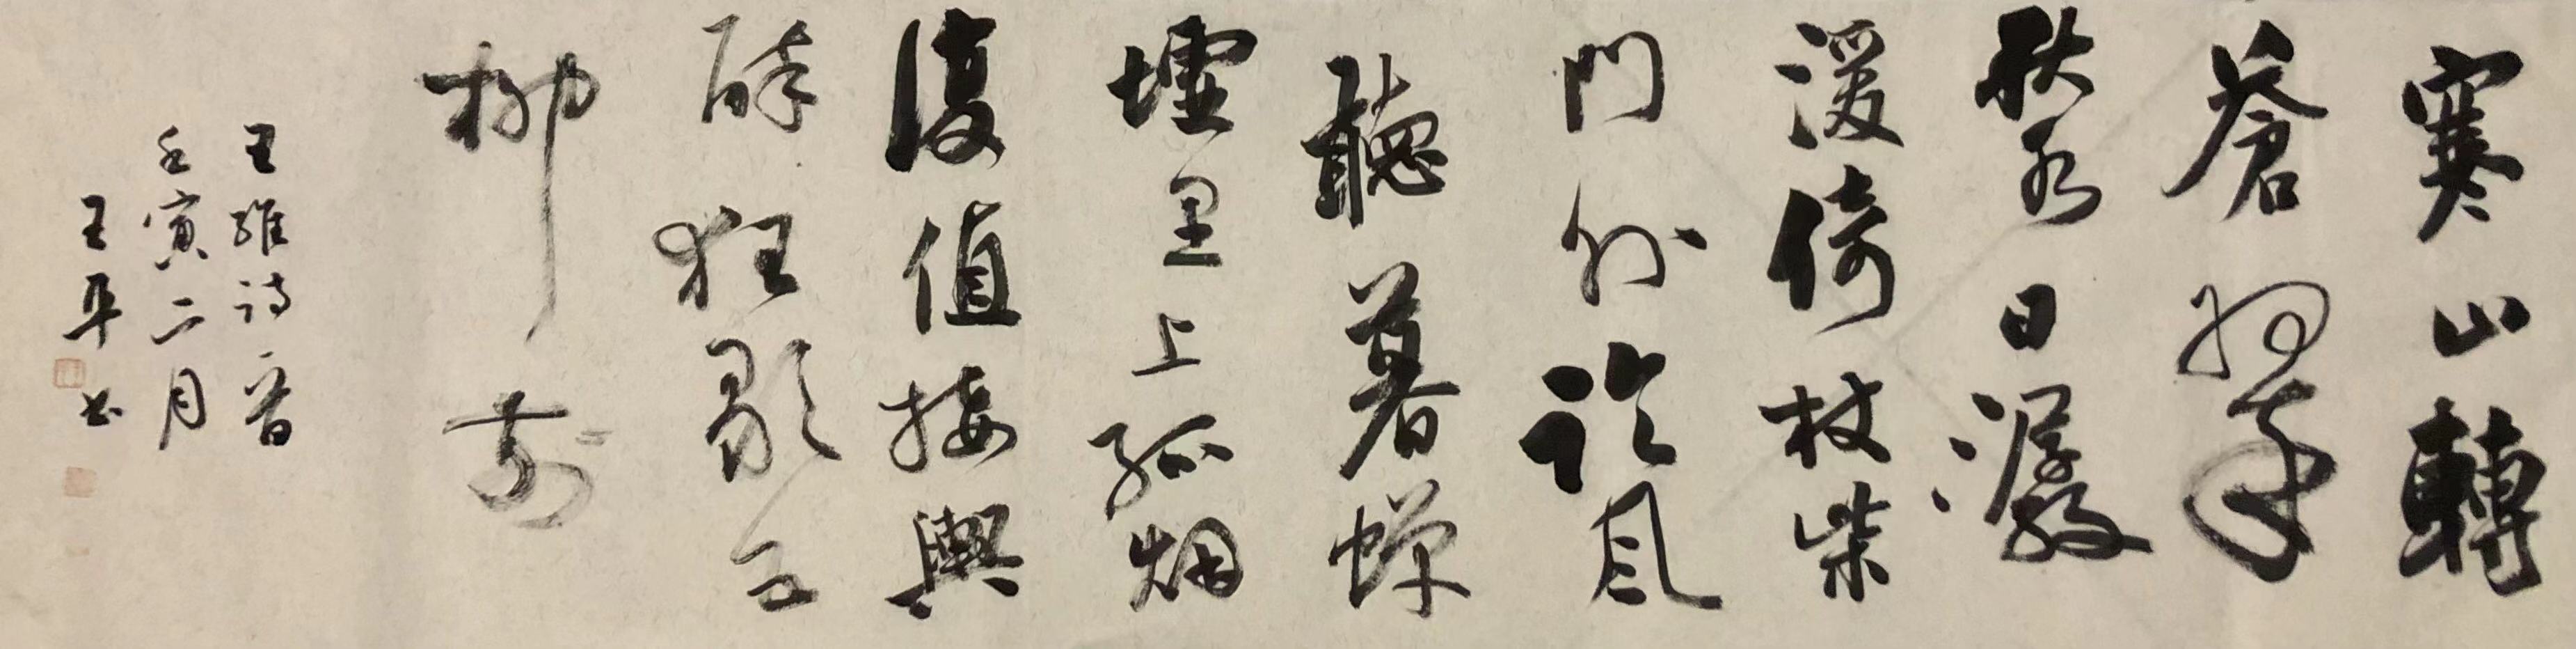 寒山轉
蒼翠
秋水日潺
湲倚杖柴
門外臨風
聽暮蟬
墟里上孤烟
復值接輿
醉狂歌五
柳前
王維詩一首
壬寅二月
王书